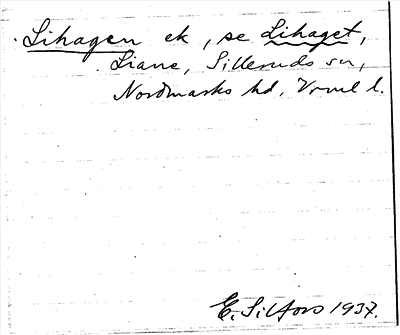 Lihagen ek, se Lihaget,
Liane, Silleruds sn,
Nordmarks hd, Vrml l.
E. Silfors 1937.